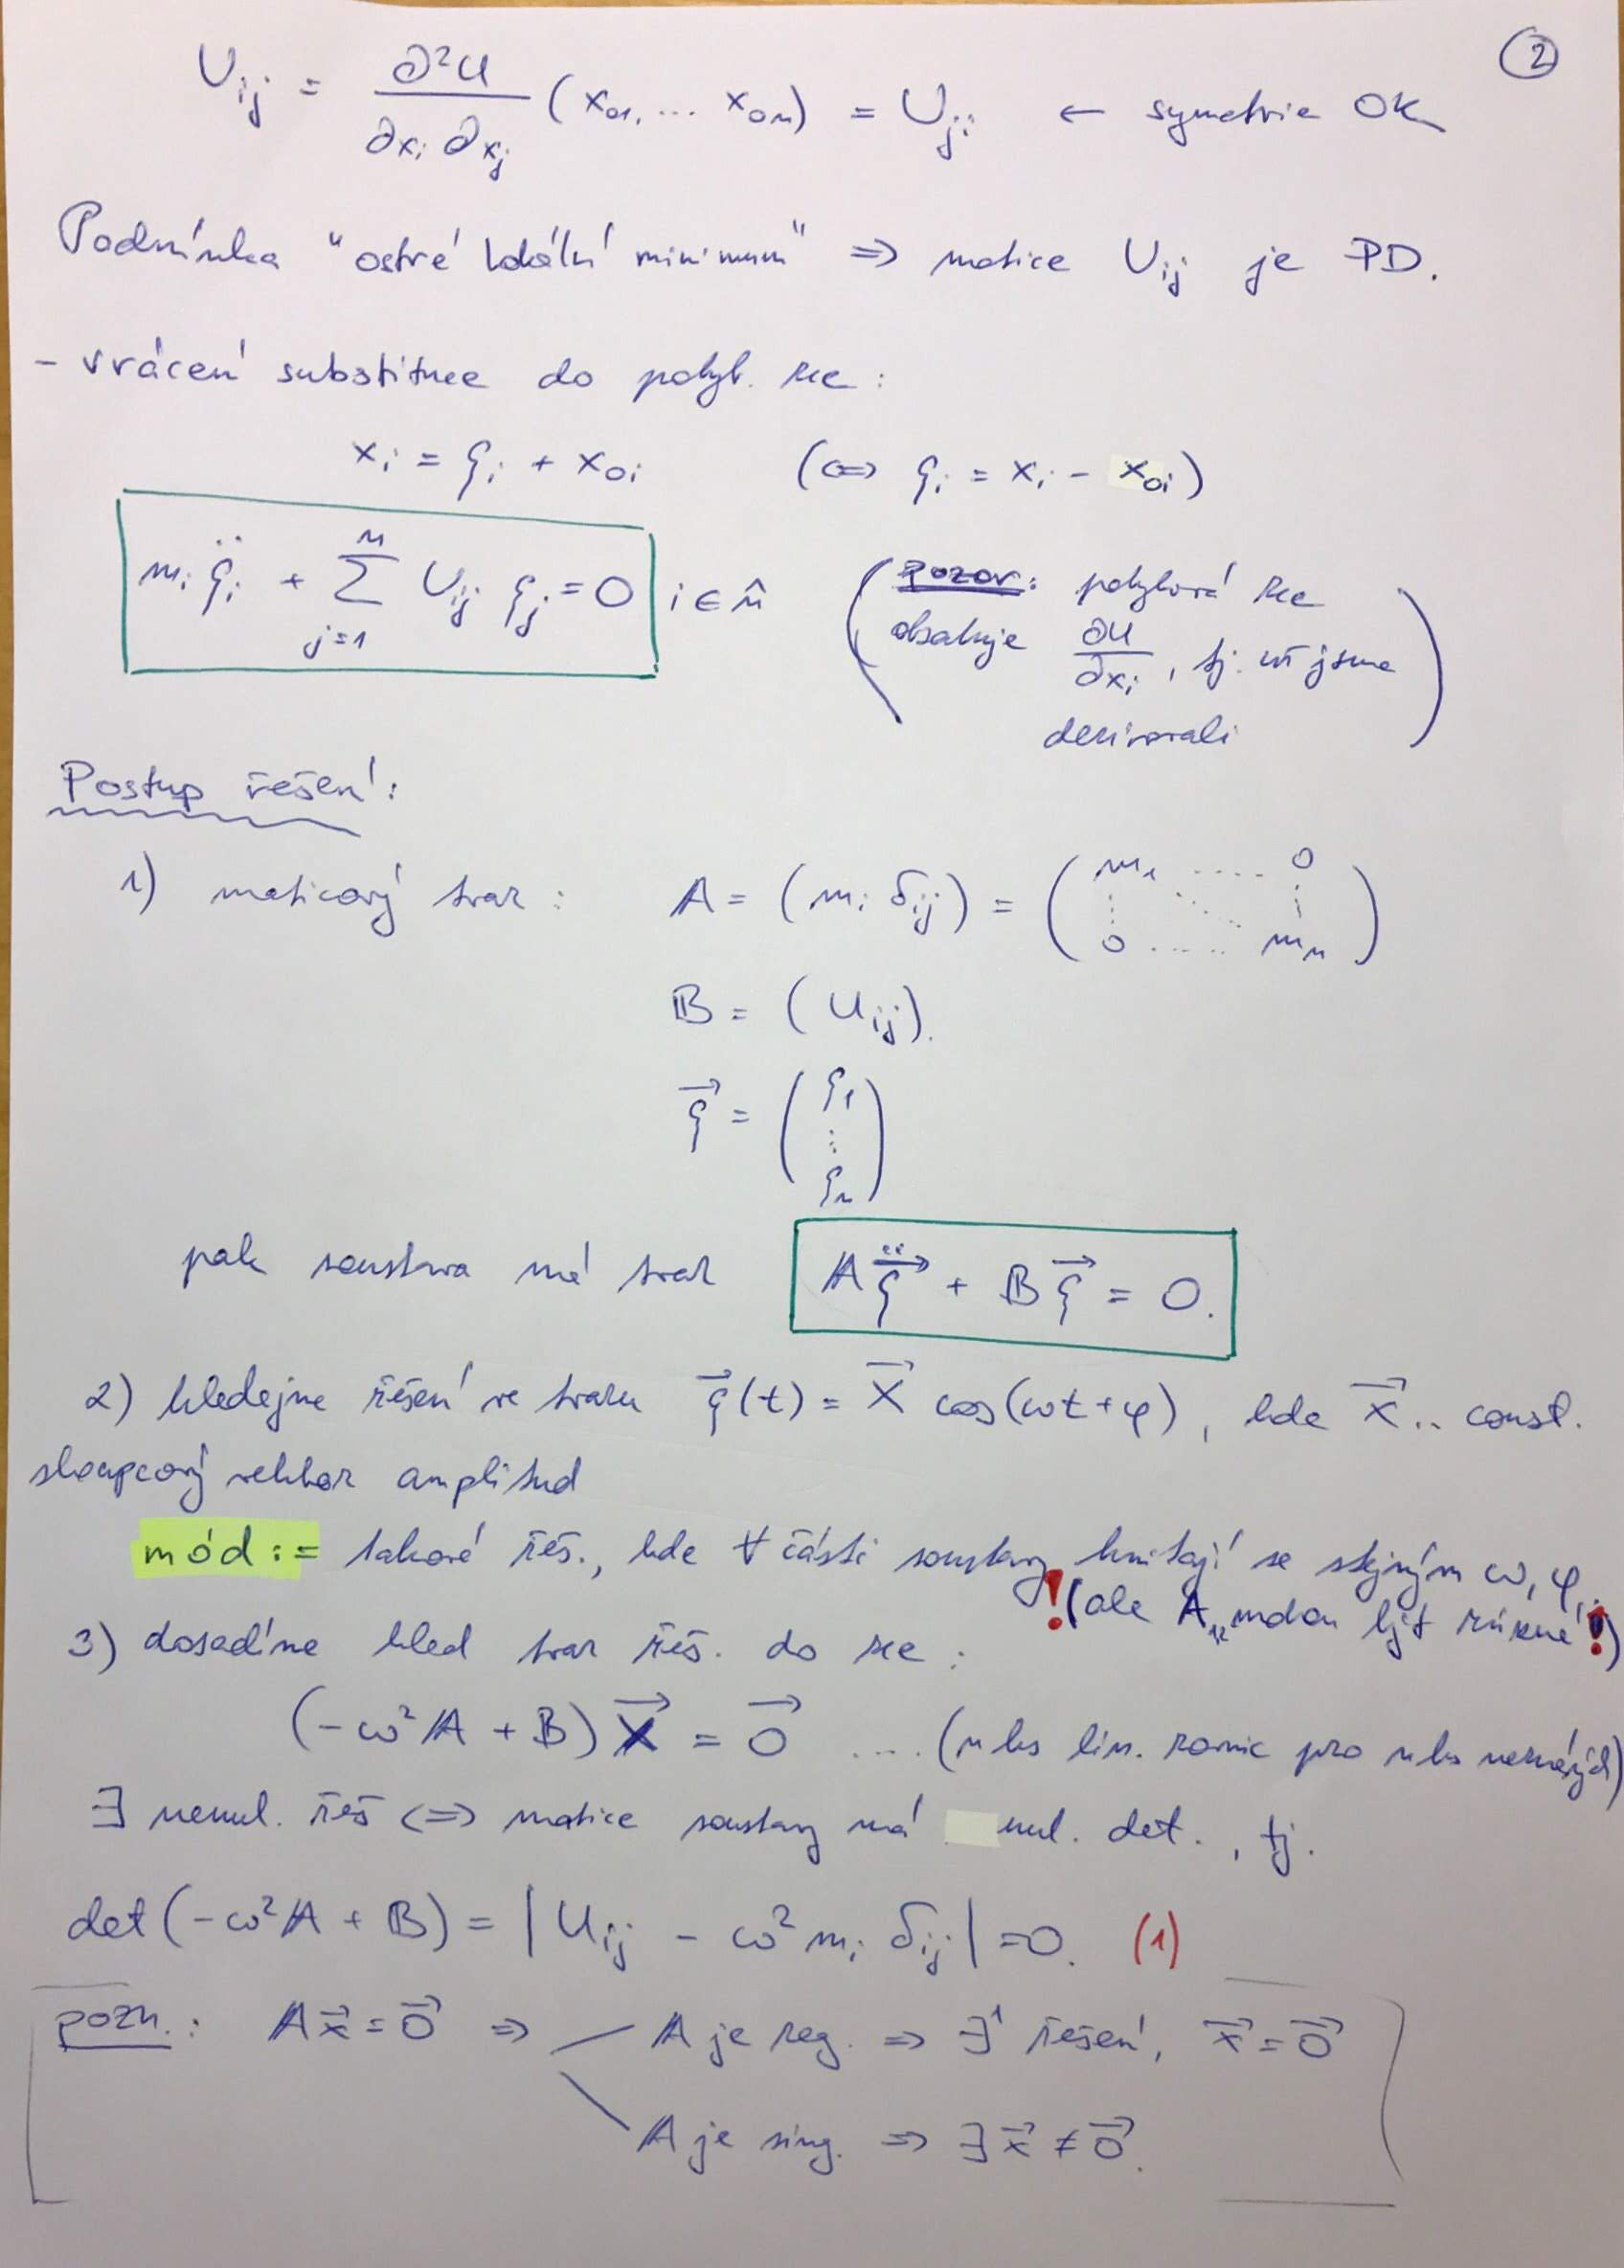 ②
U_ij = ∂²U / ∂x_i ∂x_j (x_01, ... x_0n) = U_ji ← symetrie OK
Podmínka "ostré lokální minimum" ⇒ matice U_ij je PD.
- vrácení substituce do pohyb. rce :
x_i = ξ_i + x_0i (⇔ ξ_i = x_i - x_0i)
m_i ξ̈_i + ∑_{j=1}^{n} U_ij ξ_j = 0 i ∈ n̂
(pozor: pohybová rce
obsahuje ∂U/∂x_i, tj. už jsme
derivovali)
Postup řešení:
1) maticový tvar : 𝔸 = (m_i δ_ij) = ( m_1 ..... 0
0 ..... m_n )
𝔹 = (U_ij).
ξ⃗ = ( ξ_1
⋮
ξ_n )
pak soustava má tvar 𝔸 ξ⃗̈ + 𝔹 ξ⃗ = 0.
2) hledejme řešení ve tvaru ξ⃗(t) = X⃗ cos(ωt+φ), kde X⃗ .. const.
sloupcový vektor amplitud
mód := takové řeš., kde ∀ části soustavy kmitají se stejným ω, φ
!(ale A mohou být různé!)
3) dosadíme hled tvar řeš. do rce :
(-ω²𝔸 + 𝔹) X⃗ = 0⃗ .... (n ks lin. rovnic pro n ks neznámých)
∃ nenul. řeš ⇔ matice soustavy má nul. det. , tj.
det(-ω²𝔸 + 𝔹) = |U_ij - ω² m_i δ_ij| = 0. (1)
pozn.: 𝔸x⃗ = 0⃗ ⇒ 𝔸 je reg. ⇒ ∃¹ řešení, x⃗ = 0⃗
𝔸 je sing. ⇒ ∃ x⃗ ≠ 0⃗.